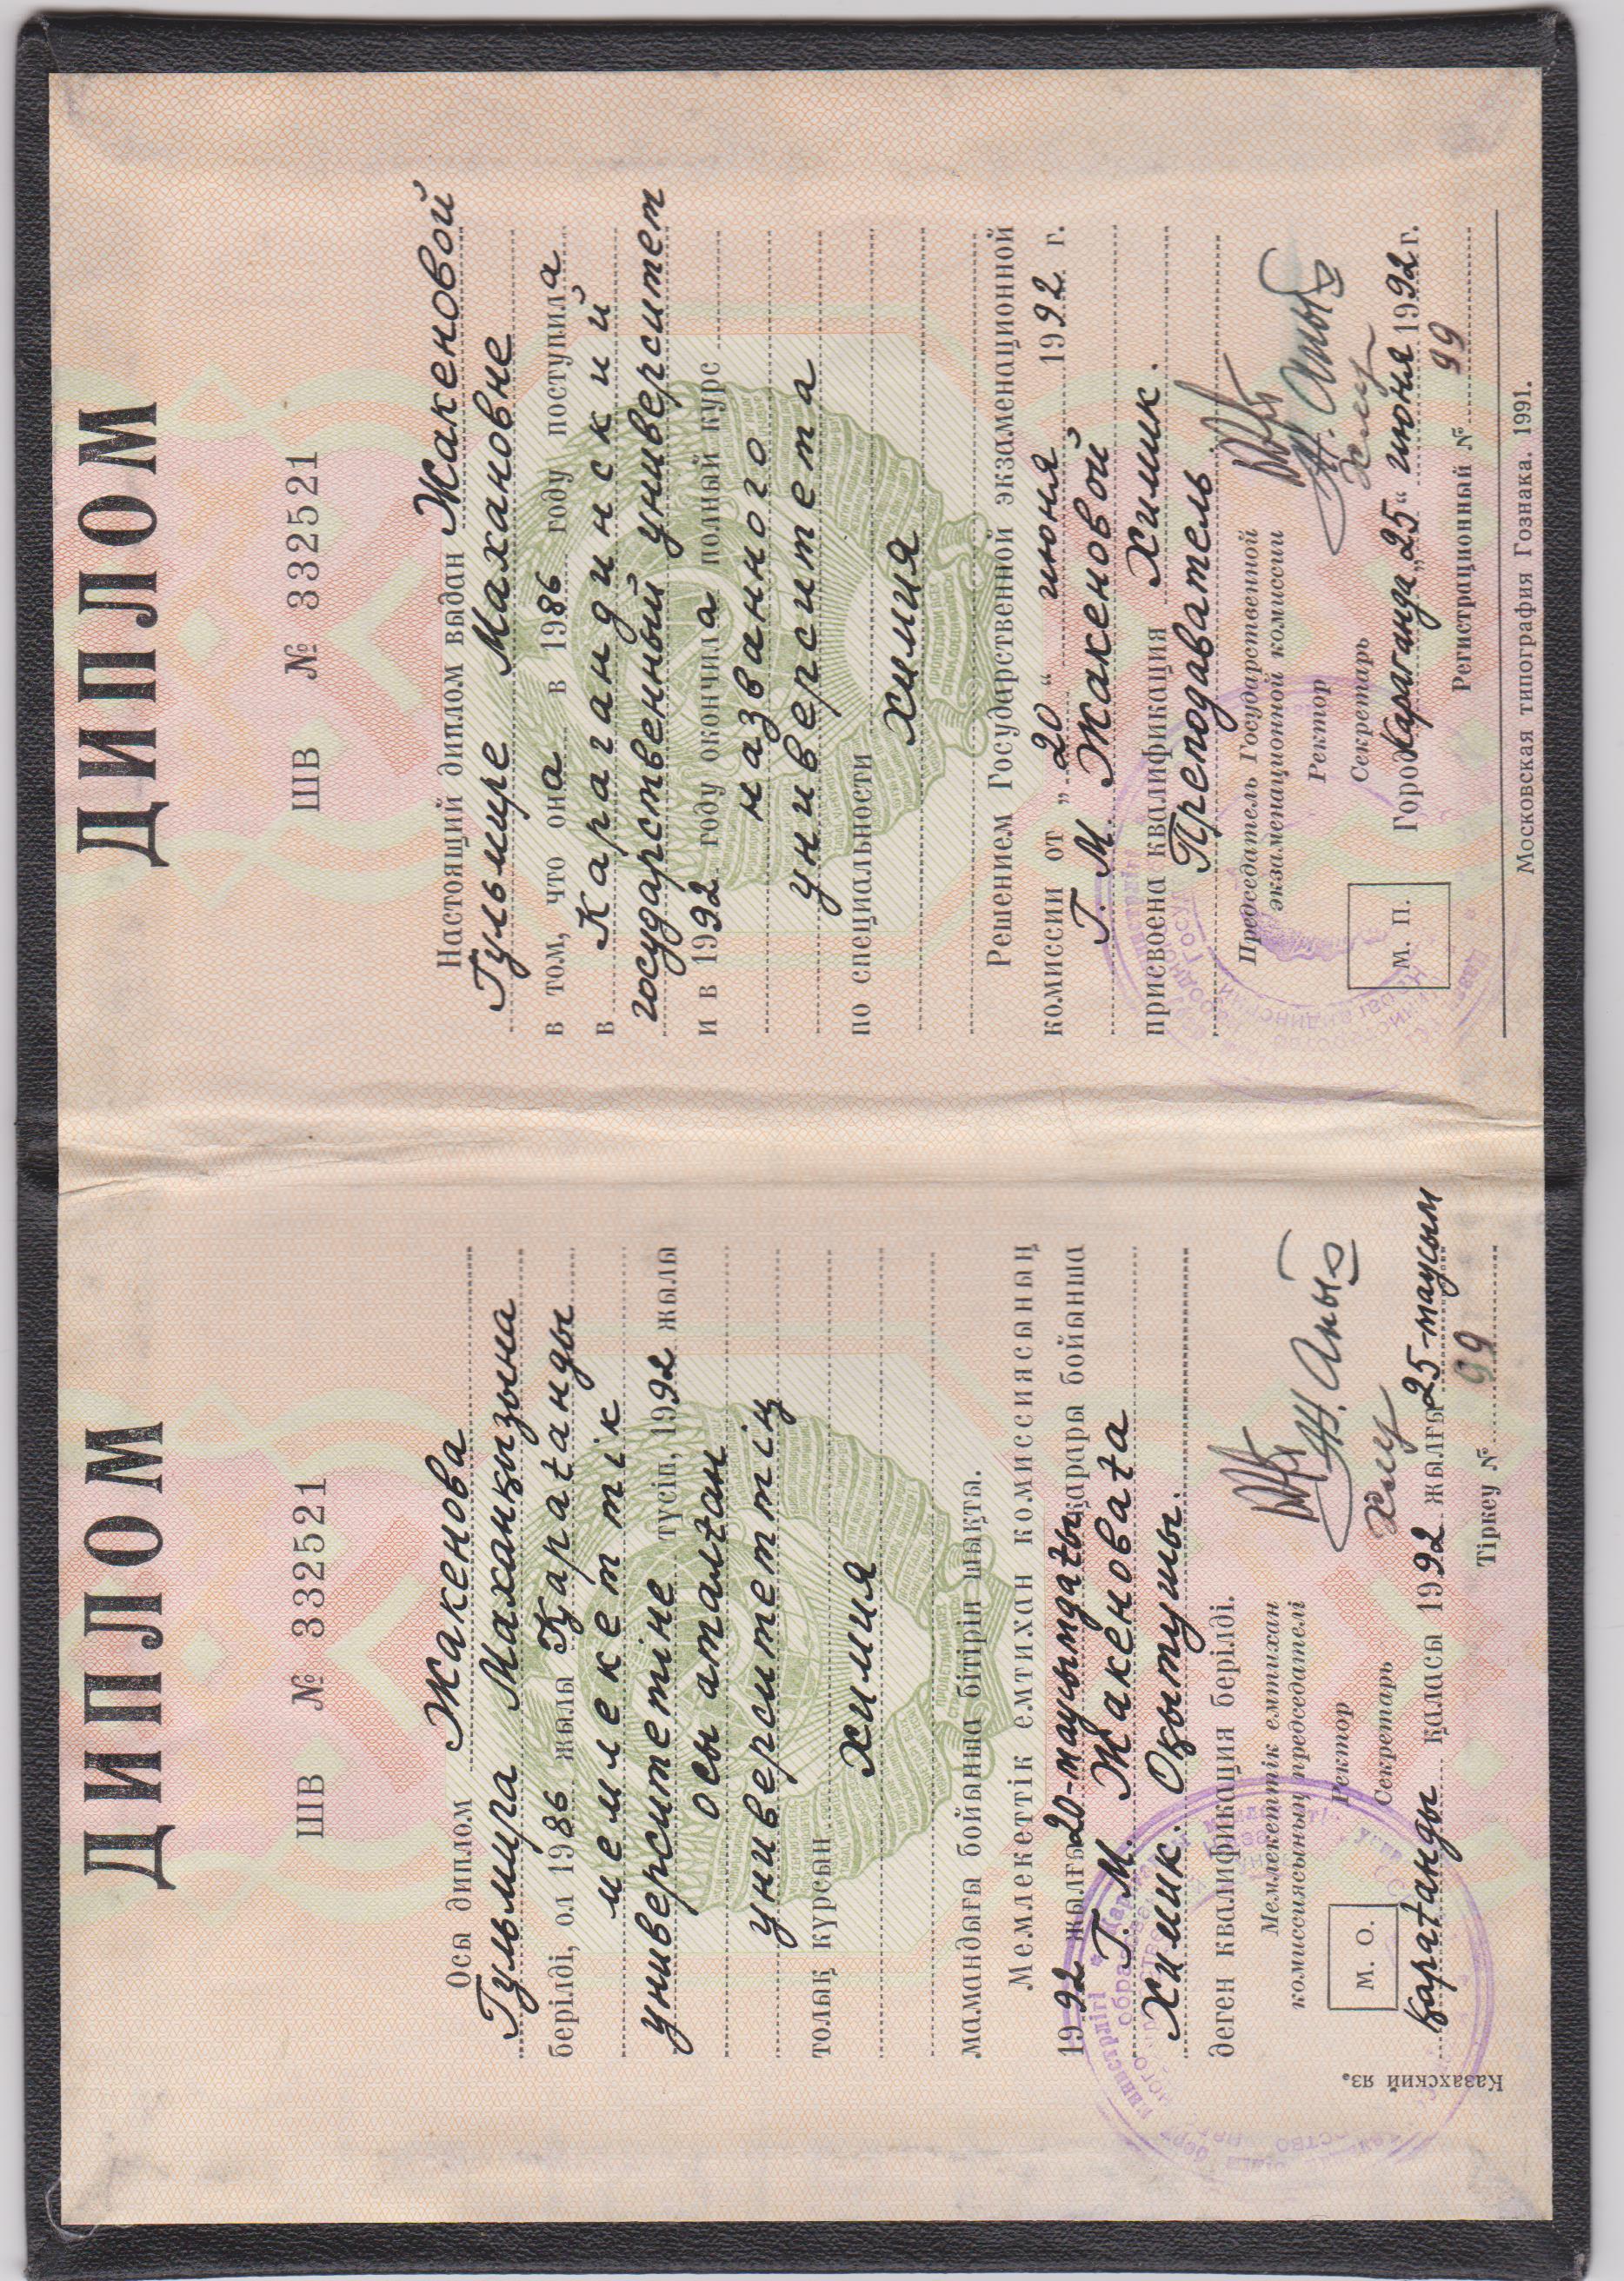 ДИПЛОМ
ШВ № 332521
Осы диплом Жакенова
Гульмира Маханқызына
берілді, ол 1986 жылы Қарағанды
мемлекеттік
университетіне түсіп, 1992 жылы
осы аталған
университеттің
толық курсын
химия
мамандығы бойынша бітіріп шықты.
Мемлекеттік емтихан комиссиясының
1992 жылғы 20-маусымдағы қарары бойынша
Г. М. Жакеноваға
Химик. Оқытушы.
деген квалификация берілді.
Мемлекеттік емтихан
комиссиясының председателі
Ректор
Секретарь
М. О.
Қарағанды қаласы 1992 жылғы 25-маусым
Тіркеу № 99
Казахский яз.
ДИПЛОМ
ШВ № 332521
Настоящий диплом выдан Жакеновой
Гульмире Махановне
в том, что она в 1986 году поступила
в Карагандинский
государственный университет
и в 1992 году окончила полный курс
названного
университета
по специальности
химия
Решением Государственной экзаменационной
комиссии от „20“ июня 1992 г.
Г. М Жакеновой
присвоена квалификация Химик.
Преподаватель.
Председатель Государственной
экзаменационной комиссии
Ректор
Секретарь
М. П.
Город Караганда „25“ июня 1992 г.
Регистрационный № 99
Московская типография Гознака. 1991.